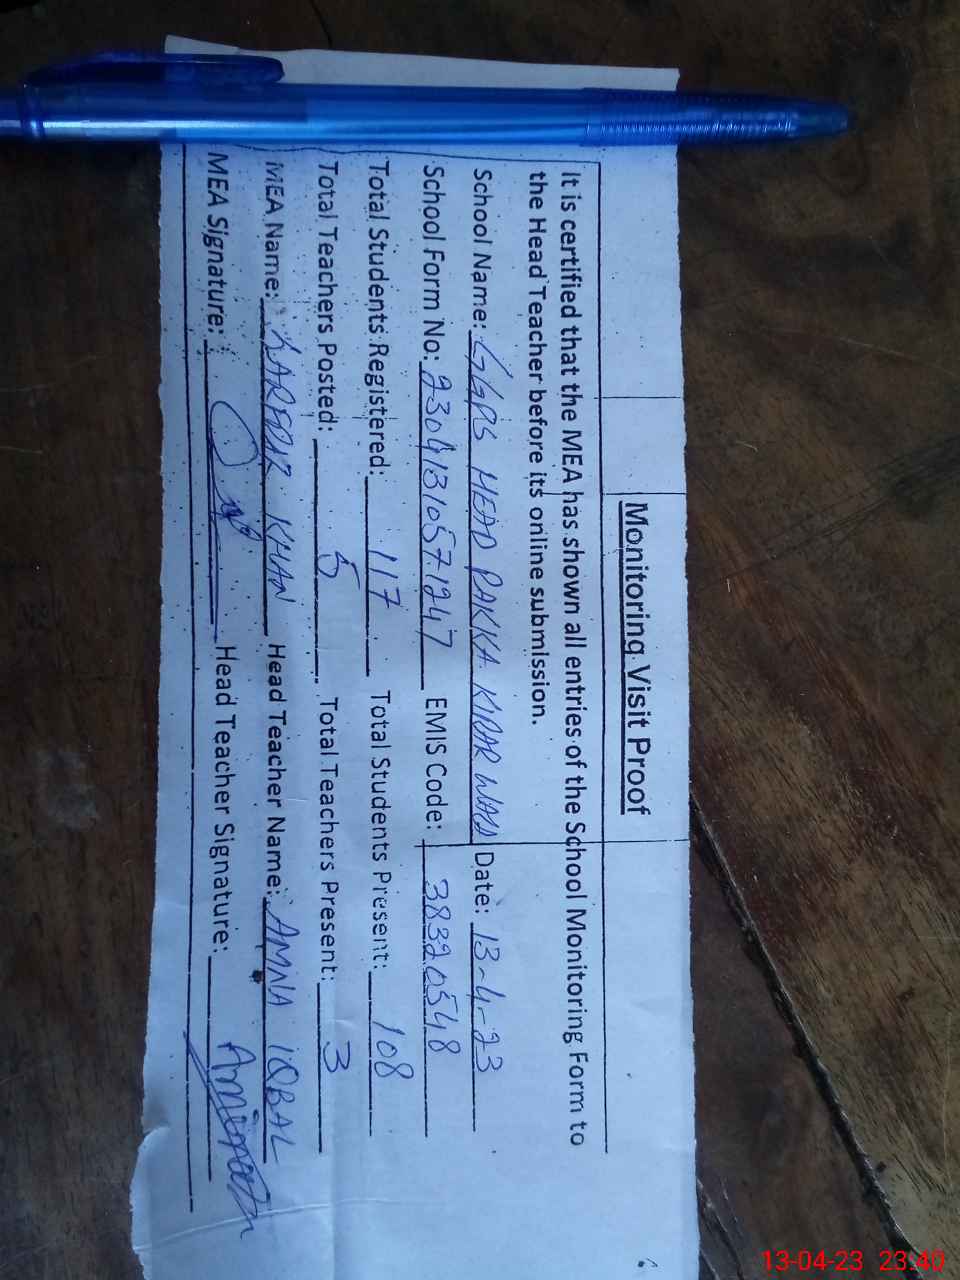 Monitoring Visit Proof
It is certified that the MEA has shown all entries of the School Monitoring Form to
the Head Teacher before its online submission.
School Name: GGPS HEAD PAKKA KIDAR WALA Date: 13-4-23
School Form No: 23041310571247 EMIS Code: 38320548
Total Students Registered: 117 Total Students Present: 108
Total Teachers Posted: 5 Total Teachers Present: 3
MEA Name: KHAN Head Teacher Name: AMNA IQBAL
MEA Signature: Head Teacher Signature:
13-04-23 23:40